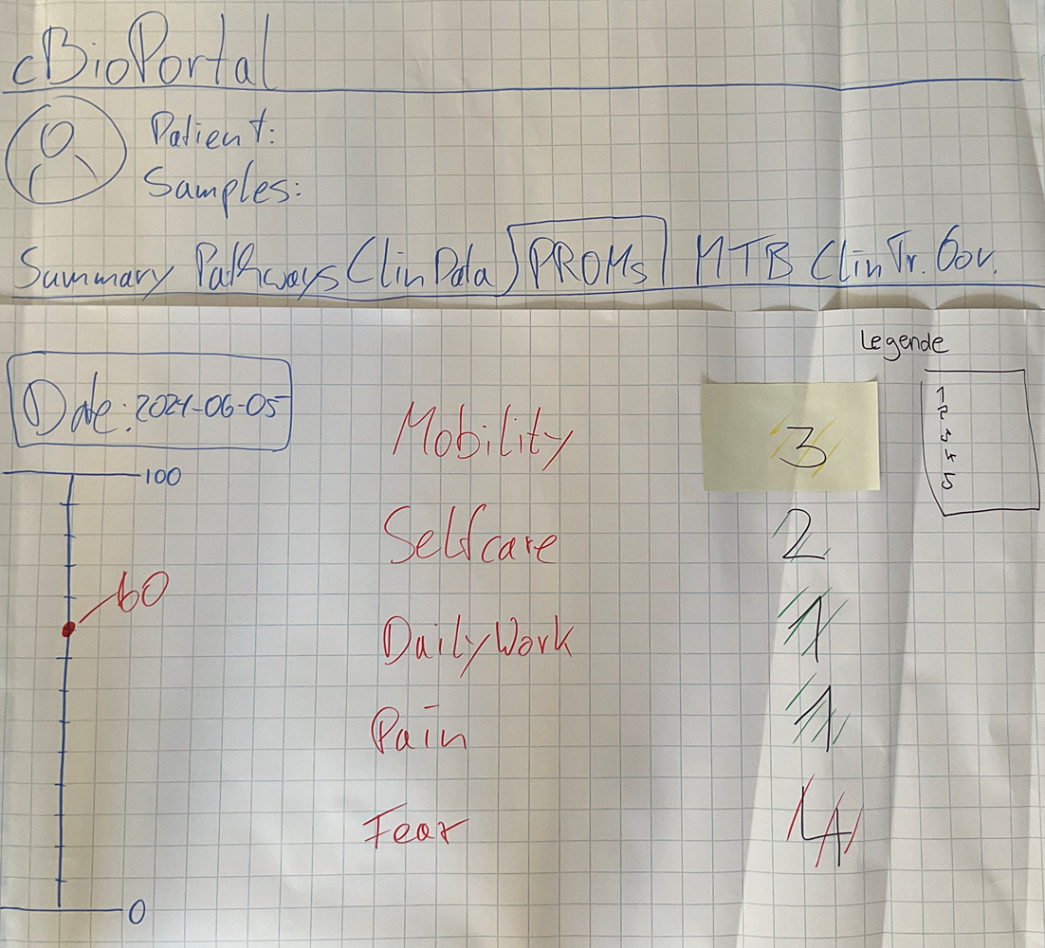 cBioPortal
Patient:
Samples:
Summary Pathways ClinData PROMs MTB ClinTr.Gov.
Legende
Date: 2021-06-05
1
2
3
4
5
100
Mobility 3
Selfcare 2
60
DailyWork 1
Pain 1
Fear 4
0